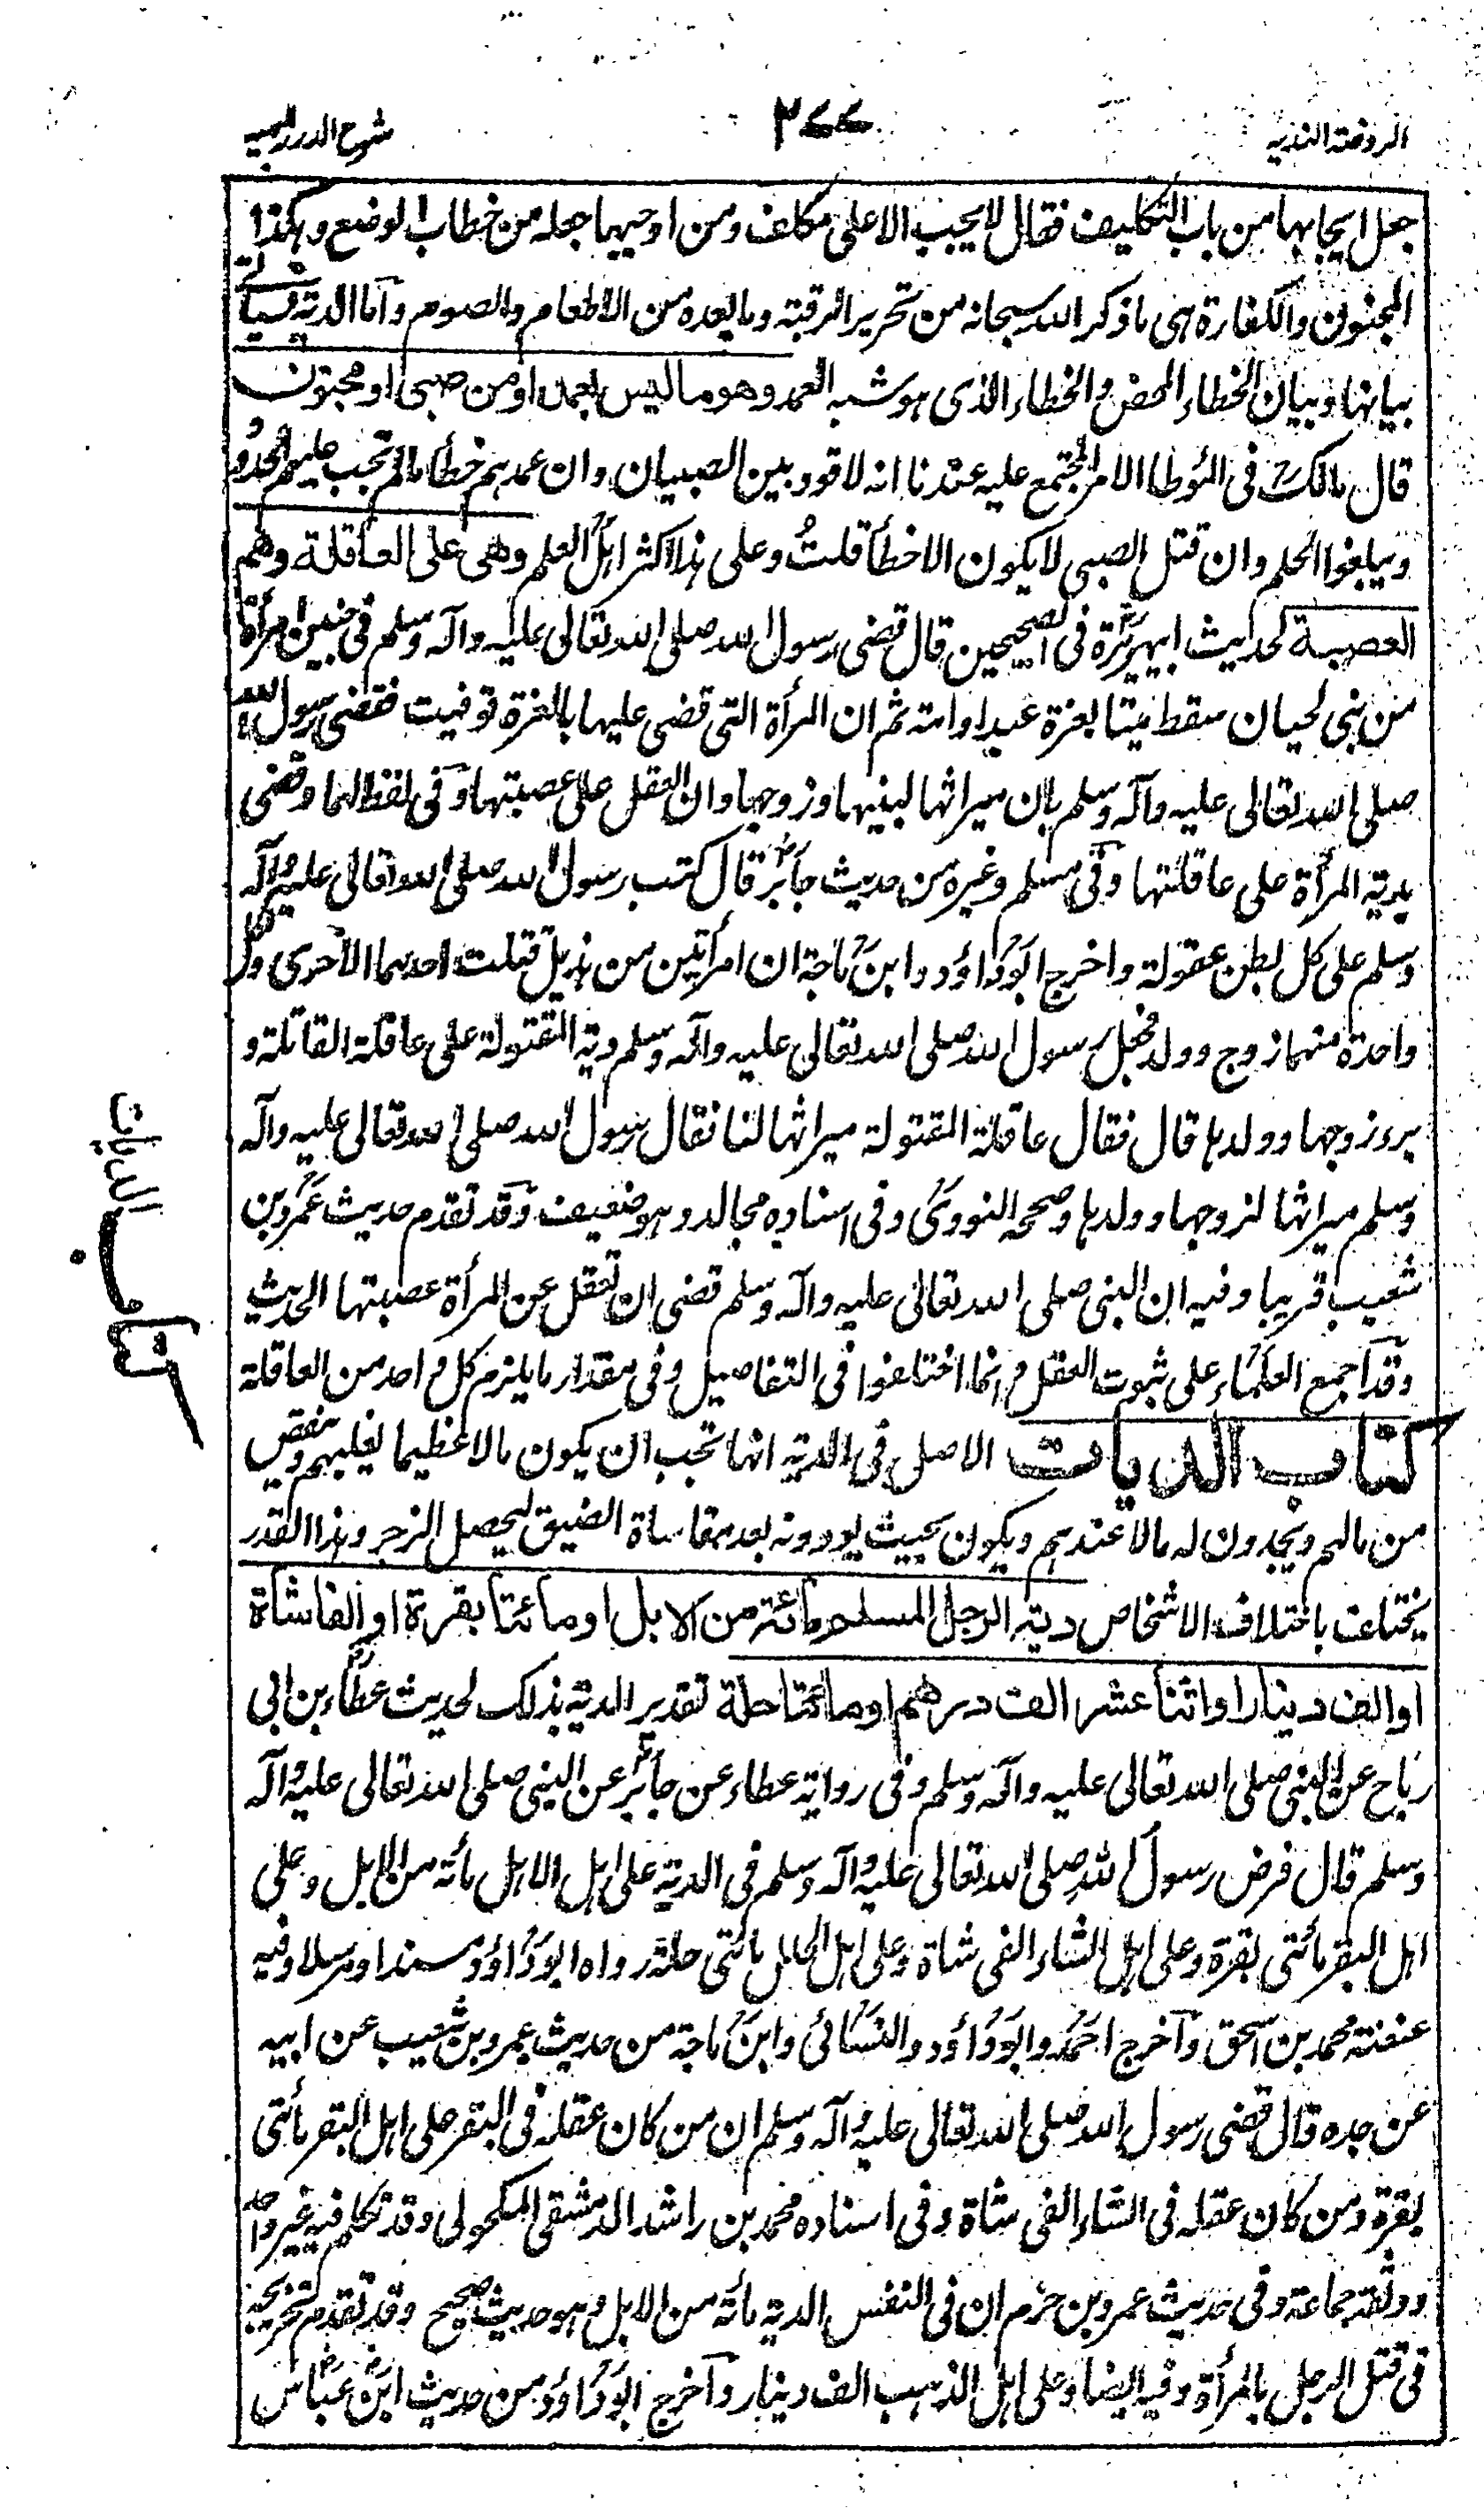 الروضة الندية
٣٧٧
شرح الدرر البهية
جعل ايجابها من باب التكليف فقال لا يجب الا على مكلف ومن اوجبهما جعله من خطاب الوضع وهكذا
المجنون والكفارة هى ما ذكر الله سبحانه من تحرير الرقبة وما بعده من الاطعام والصوم وآما الدية فسياتى
بيانها وبيان الخطاء المحض والخطاء الذى هو شبه العمد وهو ما ليس بعمد او من صبى او مجنون
قال مالكؒ فى المؤطا الامر المجتمع عليه عندنا انه لا قود بين الصبيان وان عمدهم خطأ ما لم تجب عليهم الحدود
ويبلغوا الحلم وان قتل الصبى لا يكون الا خطأ قلتُ وعلى هذا اكثر اهل العلم وهى على العاقلة وهم
العصبة لحديث ابيهريرة فى الصحيحين قال قضى رسول الله صلى الله تعالى عليه وآله وسلم فى جنين امرأة
من بنى لحيان سقط ميتا بغرة عبد او امته ثم ان المرأة التى قضى عليها بالغرة توفيت فقضى رسول الله
صلى الله تعالى عليه وآله وسلم بان ميراثها لبنيها وزوجها وان العقل على عصبتها وفى لفظ لهما وقضى
بدية المرأة على عاقلتها وفى مسلم وغيره من حديث جابرؓ قال كتب رسول الله صلى الله تعالى عليه وآله
وسلم على كل بطن عقولة واخرج ابوداؤد وابن ماجة ان امرأتين من هذيل قتلت احدهما الأخرى ولكل
واحدة منهما زوج وولد فجعل رسول الله صلى الله تعالى عليه وآله وسلم دية المقتولة على عاقلة القاتلة و
برء زوجها وولدها قال فقال عاقلة المقتولة ميراثها لنا فقال رسول الله صلى الله تعالى عليه وآله
وسلم ميراثها لزوجها وولدها وصححه النووى وفى اسناده مجالد وهو ضعيف وقد تقدم حديث عمرو بن
شعيب قريبا وفيه ان النبى صلى الله تعالى عليه وآله وسلم قضى ان تعقل عن المرأة عصبتها الحديث
وقد اجمع العلماء على ثبوت العقل وانما اختلفوا فى التفاصيل وفى مقدار ما يلزم كل واحد من العاقلة
كتاب الديات الاصل فى الدية انها تجب ان يكون مالا عظيما يغلبهم وينقص
من مالهم ويجدون له مالا عندهم ويكون بحيث يودونه بعد مقاساة الضيق ليحصل الزجر وهذا القدر
يختلف باختلاف الاشخاص دية الرجل المسلم مائة من الابل او مائتا بقرة او الفا شاة
او الف دينار او اثنا عشر الف درهم او مائتا حلة تقدير الدية بذلك لحديث عطاء بن ابى
رباح عن النبى صلى الله تعالى عليه وآله وسلم وفى رواية عطاء عن جابرؓ عن النبى صلى الله تعالى عليه وآله
وسلم قال فرض رسول الله صلى الله تعالى عليه وآله وسلم فى الدية على اهل الابل مائة من الابل وعلى
اهل البقر مائتى بقرة وعلى اهل الشاء الفى شاة وعلى اهل الحلل مائتى حلة رواه ابوداؤد مسندا ومرسلا وفيه
عنعنة محمد بن اسحق وآخرج احمد وابوداؤد والنسائى وابن ماجة من حديث عمرو بن شعيب عن ابيه
عن جده قال قضى رسول الله صلى الله تعالى عليه وآله وسلم ان من كان عقله فى البقر على اهل البقر مائتى
بقرة ومن كان عقله فى الشاء الفى شاة وفى اسناده محمد بن راشد الدمشقى المكحولى وقد تكلم فيه غير واحد
ووثقه جماعة وفى حديث عمرو بن حزم ان فى النفس الدية مائة من الابل وهو حديث صحيح وقد تقدم تخريجه
فى قتل الرجل بالمرأة وفيه ايضا وعلى اهل الذهب الف دينار وآخرج ابوداؤد من حديث ابن عباس
كتاب الديات